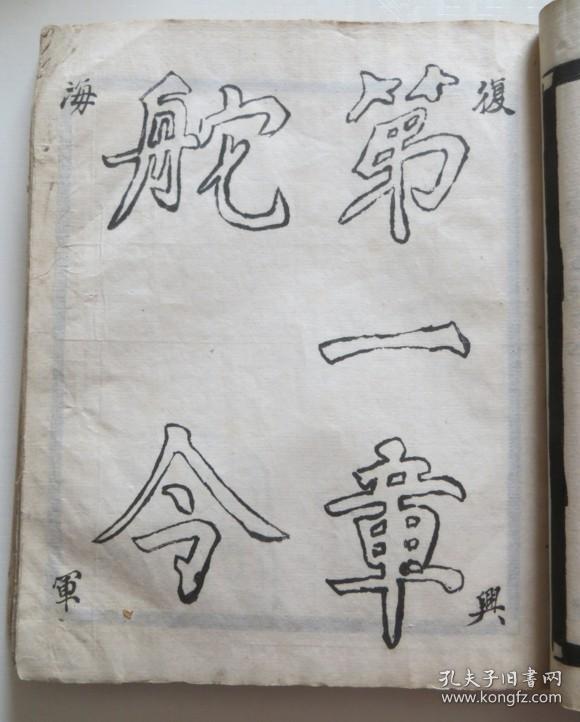 復興
第一章
舵令
海軍
孔夫子旧書网
www.kongfz.com